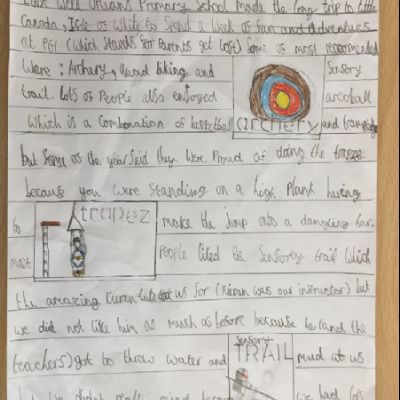 Well Urians Primnary School made the long trip to little
Canada, Isle os White to Spend a Week os Fun and Adventure
at PGL (which Stands for Parents get lost) Some os most recomended
Were : Archary, Quad biking and Sensory
trail. Lots os People also enjoyed aeroball
Which is a Combonation of basketball archery and trampoling
but Some os the year Said they were Proud os doing the
because you were Standing on a high Plank having
to trapez make the jump onto a dangling bar.
most People liked the Sensorey trail Which
the amazing Kieren us for (Kieran was our instructor) but
we did not like him as much as before because he (and the
teachers) got to throw water and sensory mud at us
TRAIL
but we didn't really mind because we had lots